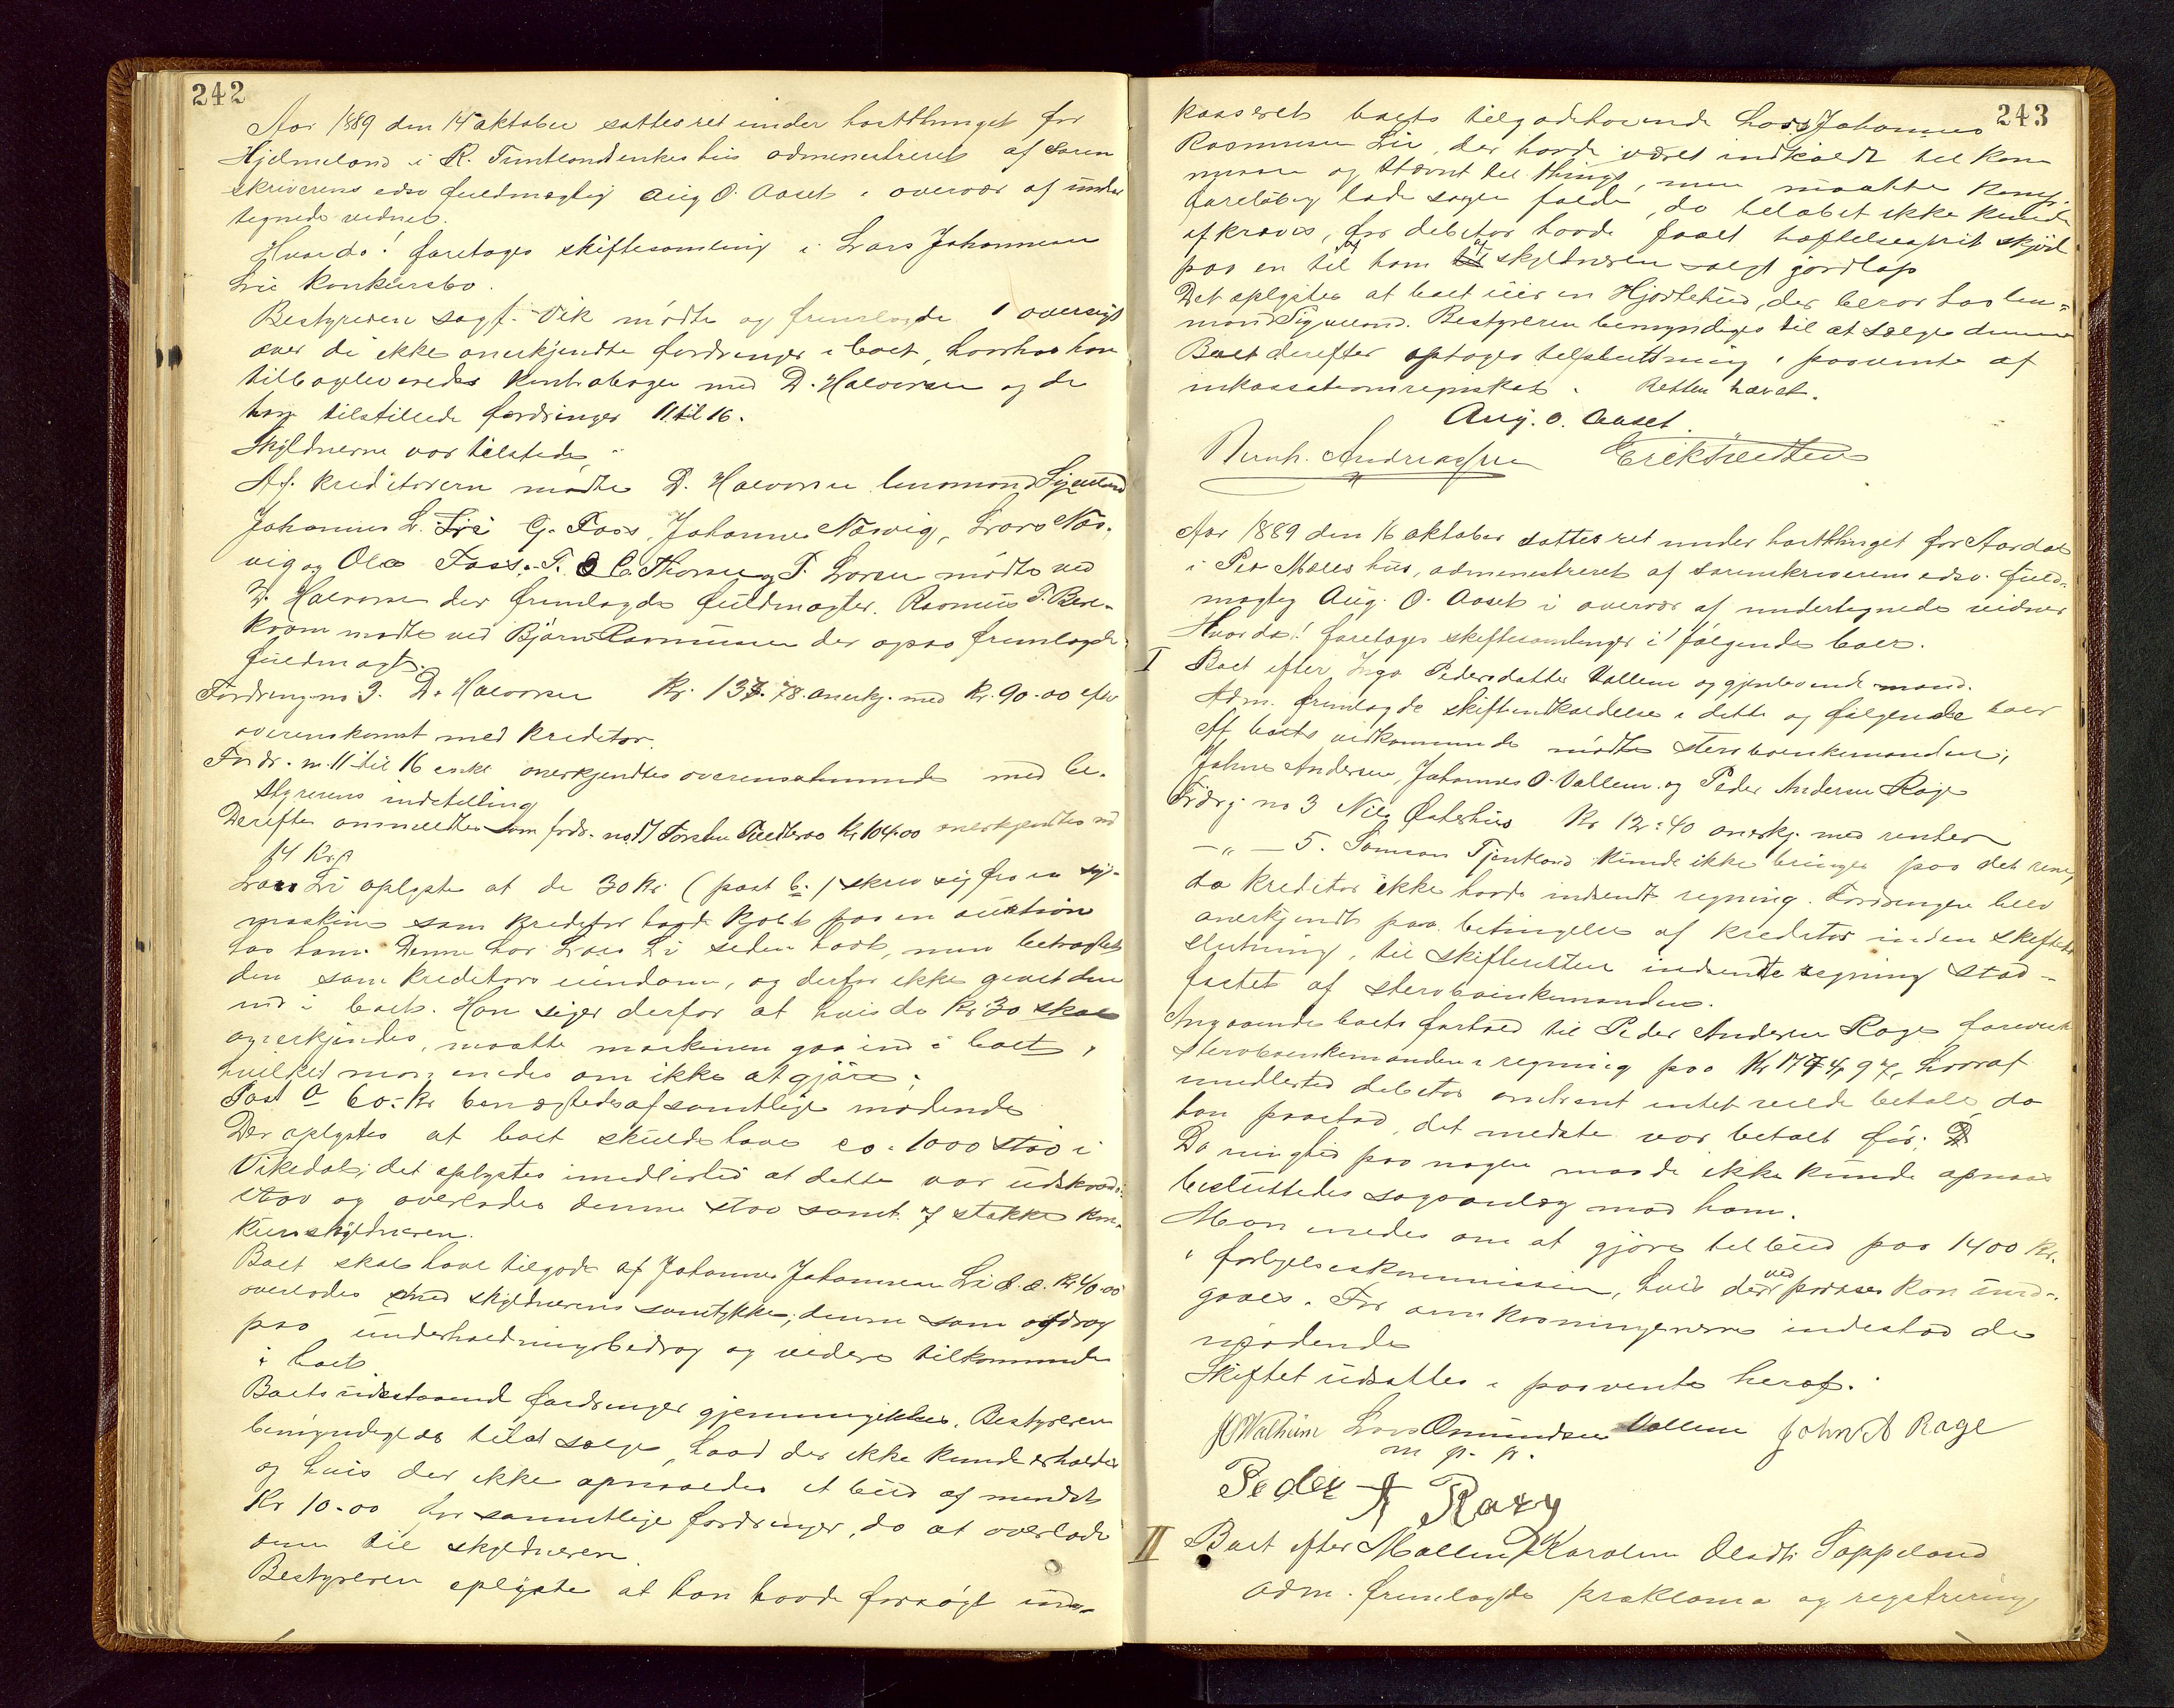 242
Aar 1889 den 14 oktober sattes ret under høstthinget for
Hjelmeland i R. Tuntlandenkes hus administreret af soren
skriverens edsv fuldmægtig Aug O. Aaset i overvær af under
tegnede vidner.
Hvorda! foretoges skiftesamling i Lars Johannesen
Lie konkursbo.
Bestyreren sagf. Vik mødte og fremlagde 1 oversigt
over de ikke anerkjendte fordringer i boet, hvorhos han
tilbageleverede kontrabøger med D. Halvorsen og de
ham tilstillede fordringer 11 til 16.
Skyldneren var tilstede.
Af kreditorern mødte D. Halvorsen lensmand Sigmund
Johannes L. Lie G. Foss, Johannes Nosvig, Lars Nos-
vig og Ola Foss. T. O C. Thorsen og T. Larsen mødte ved
D. Halvorsen der fremlagde fuldmagter. Rasmus T. Bere-
kvam mødte ved Bjørn Rasmussen der ogsaa fremlagde
fuldmagt.
Fordring no 3. D. Halvorsen Kr. 137.78 anerkj. med Kr. 90.00 efter
overenskomst med kreditor.
Fordr. n. 11 til 16 anerkjendtes overensstemmende med be-
styrerens indstilling
Derefter anmeldtes som fordr. no 17 Torsten Kr 104.00 anerkjendtes med
14 Kr
Lars Li oplyste at de 30 kr. (post b.) skrev sig fra en sy-
maskine som kreditor havde kjøbt paa en auktion
hos ham. Denne har Lars Li siden havt, men betragtet
den som kreditors eiendom, og derfor ikke givet den
ind i boet. Han siger derfor at hvis de Kr. 30 skal
anerkjendes, maatte maskinen gaa ind i boet,
hvilket man enedes om ikke at gjøre.
Post a 60.- Kr benægtedes af samtlige mødende
Der oplystes at boet skulde have ca. 1000 stav i
Vikedal; det oplystes imedlertid at dette var udskuds-
stav og overlodes denne stav samt 7 stakke kon-
kursskyldneren.
Boet skal have tilgode af Johannes Johannesen Li d. æ. Kr 40.00
overlodes med skyldnerens samtykke, denne som afdrag
paa underholdningsbidrag og videre tilkommende
i boet
Boets udestaaende fordringer gjennemgikkes. Bestyreren
bemyndigedes til at sælge, hvad der ikke kunde erholdes
og hvis der ikke opnaaedes et bud af mindst
Kr 10.00 for samtlige fordringer, da at overlade
dem til skyldneren.
Bestyreren oplyste at han havde forsøgt ind-
243
kasseret boets tilgodehavende hos Johannes
Rasmussen Lie, der havde været indkaldt til kom
mission og stævnt til things, men maatte
foreløbig lade sagen falde, da beløbet ikke kunde
afkræves, før debitor havde faaet hæftelsesfrit skjøde
paa en til ham af skyldneren solgt jordlap
Det oplystes at boet eier en Hjortehud, der beror hos lens-
mand Sigmund. Bestyreren bemyndiges til at sælge denne
Boet derefter optoges til slutning i paavente af
inkassationsregnskab. Retten hævet.
Aug. O. Aaset.
Bernh. Andreassen
Aar 1889 den 16 oktober sattes ret under høstthinget for Aardal
i Per Møles hus, administreret af sorenskriverens edsv. fuld-
mægtig Aug. O. Aaset i overvær af undertegnede vidner
Hvorda! foretoges skiftesamlinger i følgende boer.
I Boet efter Inga Pedersdatter Vallem og gjenlevende mand.
Adm. fremlagde skifteindkaldelse i dette og følgende boer
Af boets vedkommende mødte stervboenkemanden,
Johns Andersen, Johannes O. Vallem og Peder Andersen Rage
Fordrg. no 3 Nils Østerhus Kr 12.40 anerkj. med renter
— „ — 5. Samson Tjentland kunde ikke bringes paa det rene,
da kreditor ikke havde indsendt regning. Fordringen blev
anerkjendt paa betingelse af kreditor inden skiftets
slutning, til skifteretten indsendte regning stad-
fæstet af stervboenkemanden.
Angaaende boets forhold til Peder Andersen Rage foreviste
stervboenkemanden regning paa Kr 1774,97, hvoraf
imidlertid debitor omtrent intet vilde betale, da
han paastod, det medste var betalt før.
Da enighed paa nogen maade ikke kunde opnaaes
besluttedes sagsanlæg mod ham.
Man enedes om at gjøre tilbud paa 1400 Kr.
i forligelseskommission, hvis der ved prøves kan ind-
gaaes. For omkostningerne indestod de
mødende
Skiftet udsattes i paavente heraf.
Lars Osmundsen Vallem John A Rage
m p. p.
Peder A Ragy
II Boet efter Mallem Karoline Olsdtr Tappeland
Adm. fremlagde proklama og registrering